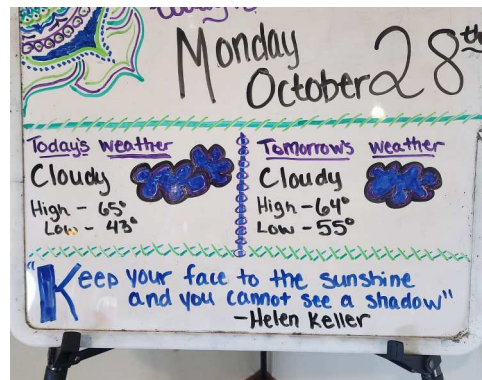 Monday
October 28th
Today's weather
Cloudy
High - 65°
Low - 43°
Tomorrow's weather
Cloudy
High - 64°
Low - 55°
"Keep your face to the sunshine
and you cannot see a shadow"
-Helen Keller